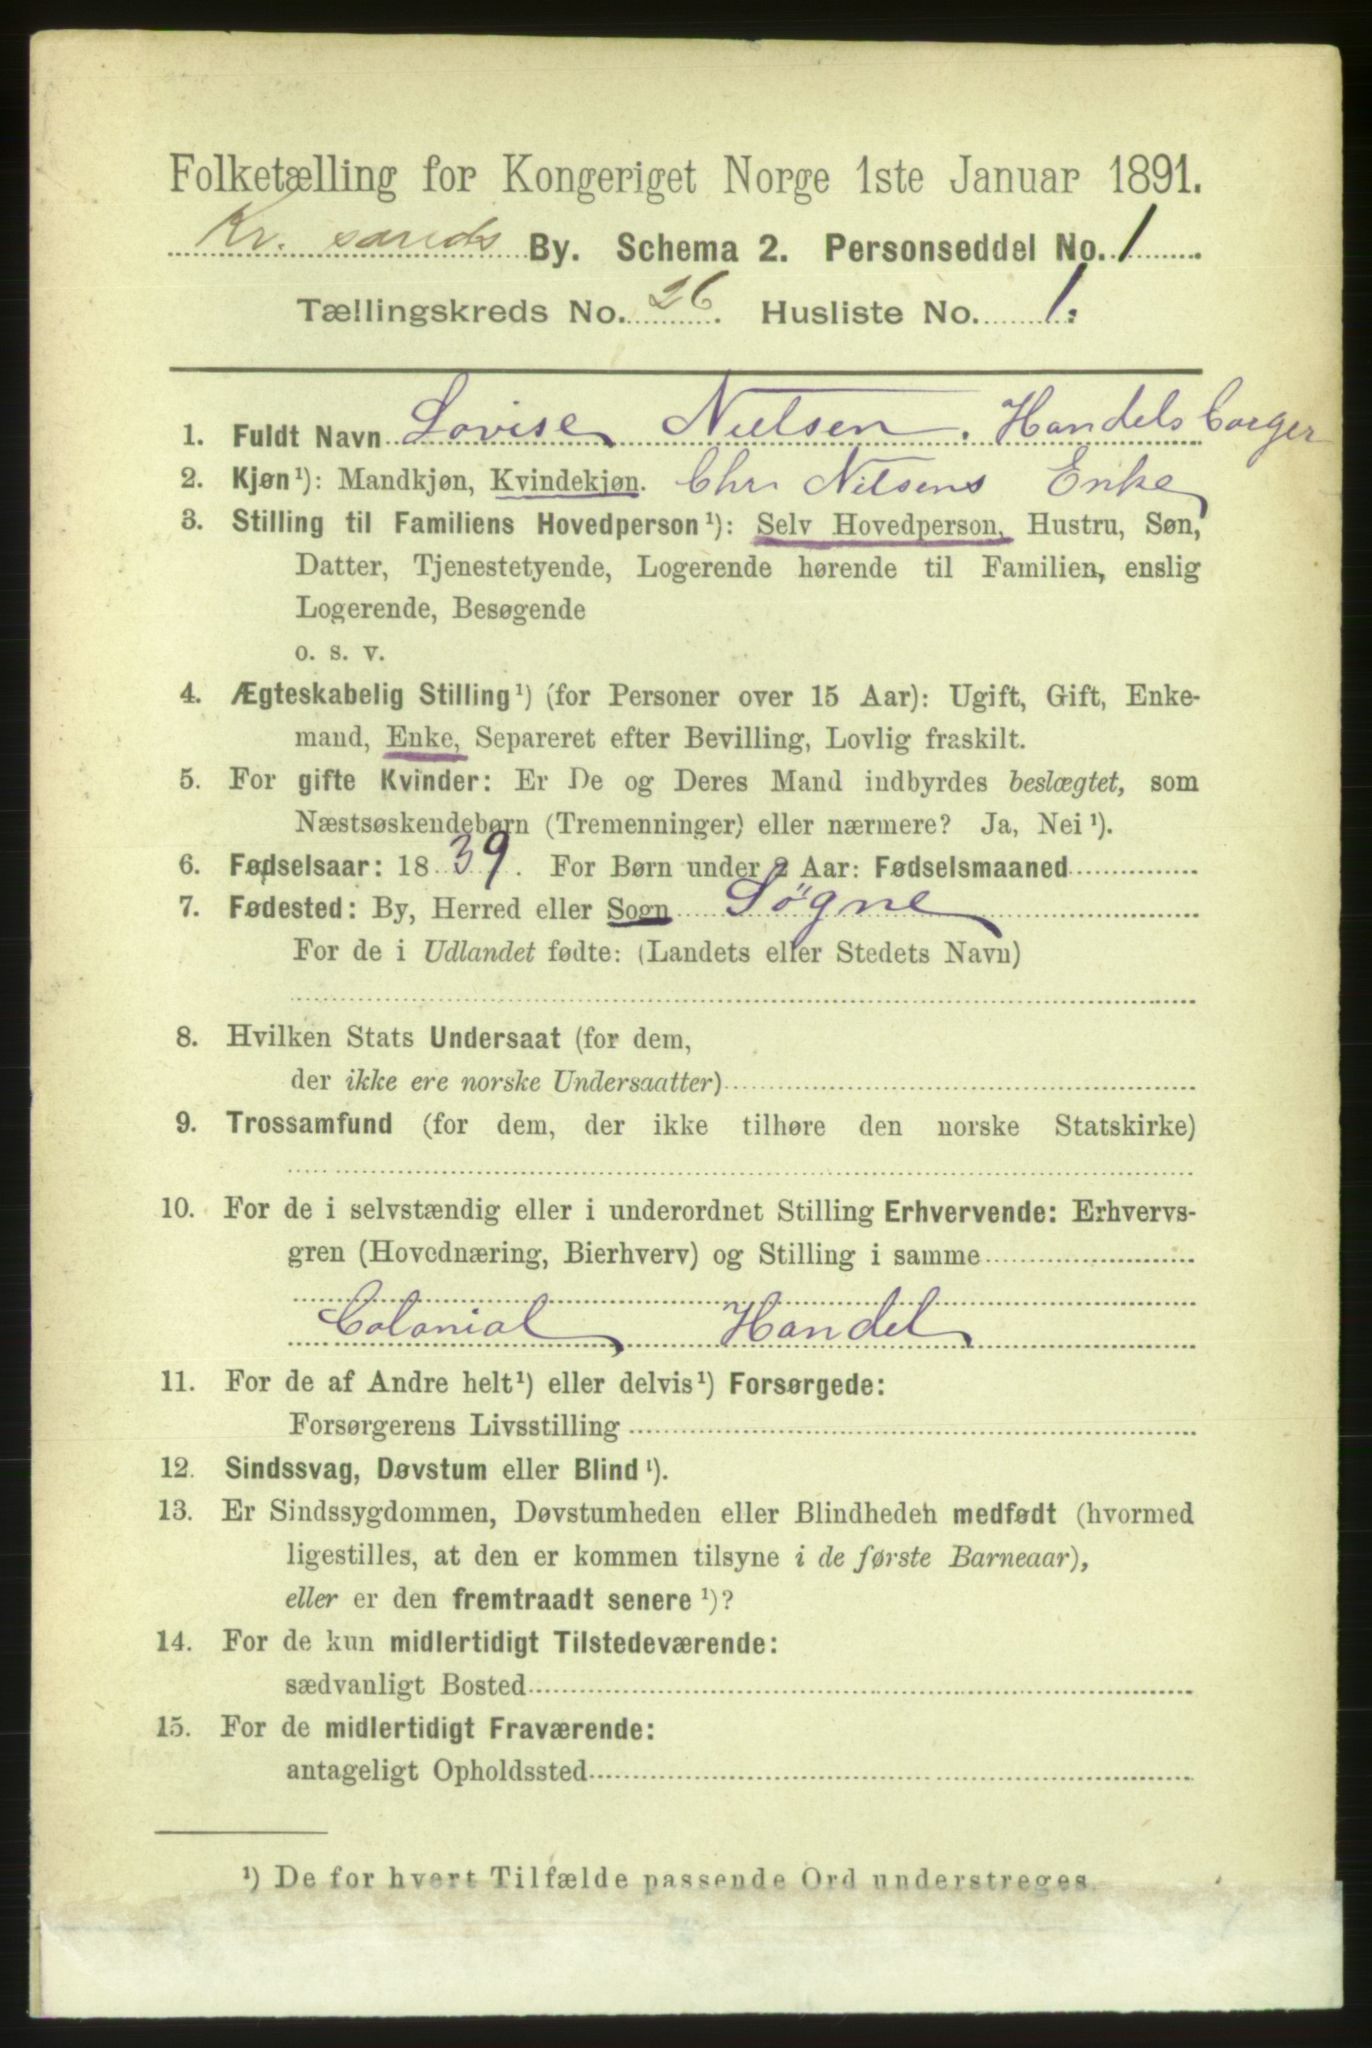 Folketælling for Kongeriget Norge 1ste Januar 1891.
Kr. sands By. Schema 2. Personseddel No. 1
Tællingskreds No. 26. Husliste No. 1.
1. Fuldt Navn Lovise Nielsen. Handelsborger
2. Kjøn¹): Mandkjøn, Kvindekjøn. Chr. Nilsens Enke
3. Stilling til Familiens Hovedperson¹): Selv Hovedperson, Hustru, Søn,
Datter, Tjenestetyende, Logerende hørende til Familien, enslig
Logerende, Besøgende
o. s. v.
4. Ægteskabelig Stilling¹) (for Personer over 15 Aar): Ugift, Gift, Enke-
mand, Enke, Separeret efter Bevilling, Lovlig fraskilt.
5. For gifte Kvinder: Er De og Deres Mand indbyrdes beslægtet, som
Næstsøskendebørn (Tremenninger) eller nærmere? Ja, Nei¹).
6. Fødselsaar: 1839. For Børn under 2 Aar: Fødselsmaaned
7. Fødested: By, Herred eller Sogn Søgne
For de i Udlandet fødte: (Landets eller Stedets Navn)
8. Hvilken Stats Undersaat (for dem,
der ikke ere norske Undersaatter)
9. Trossamfund (for dem, der ikke tilhøre den norske Statskirke)
10. For de i selvstændig eller i underordnet Stilling Erhvervende: Erhvervs-
gren (Hovednæring, Bierhverv) og Stilling i samme
Colonial Handel
11. For de af Andre helt¹) eller delvis¹) Forsørgede:
Forsørgerens Livsstilling
12. Sindssvag, Døvstum eller Blind¹).
13. Er Sindssygdommen, Døvstumheden eller Blindheden medfødt (hvormed
ligestilles, at den er kommen tilsyne i de første Barneaar),
eller er den fremtraadt senere¹)?
14. For de kun midlertidigt Tilstedeværende:
sædvanligt Bosted
15. For de midlertidigt Fraværende:
antageligt Opholdssted
¹) De for hvert Tilfælde passende Ord understreges.